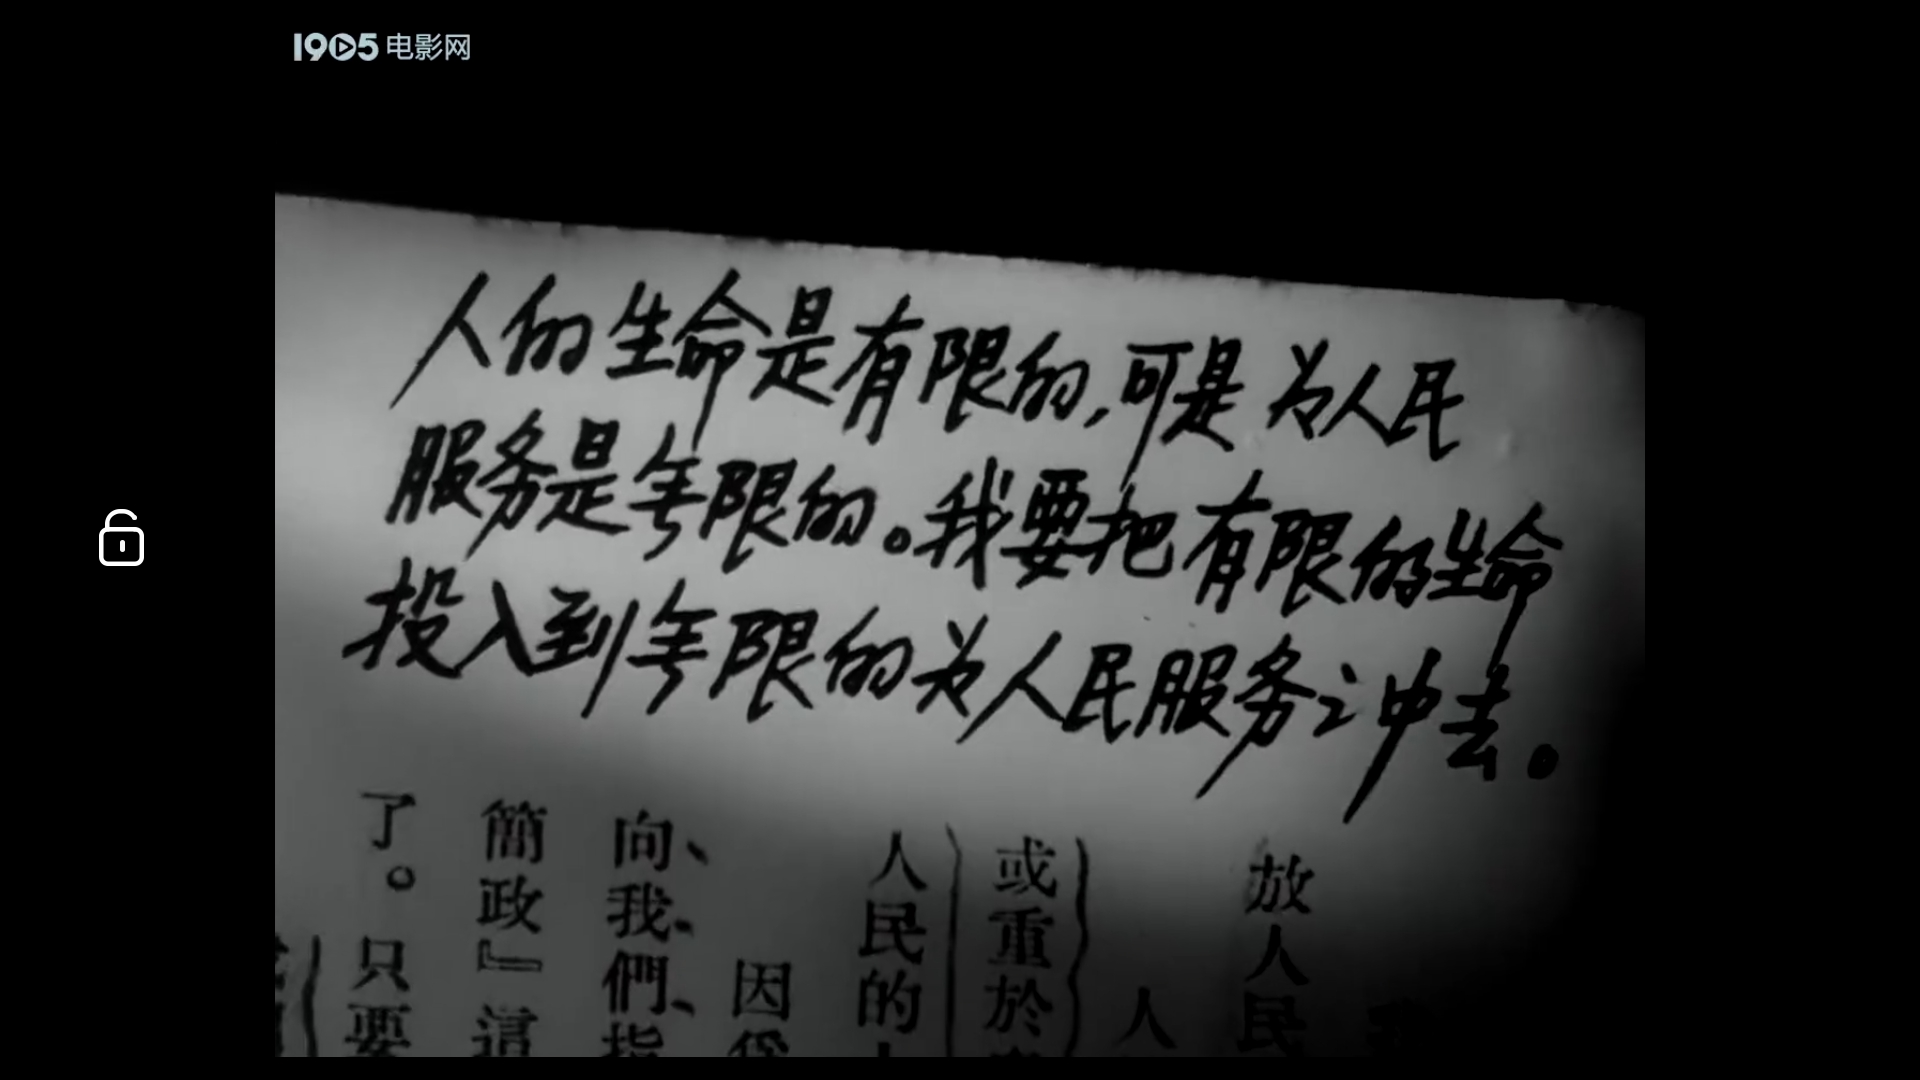 1905电影网
人的生命是有限的,可是为人民
服务是无限的。我要把有限的生命
投入到无限的为人民服务之中去。
放人民
人
或重於
人民的
因
向、我、們、指
簡政』這
了。只要